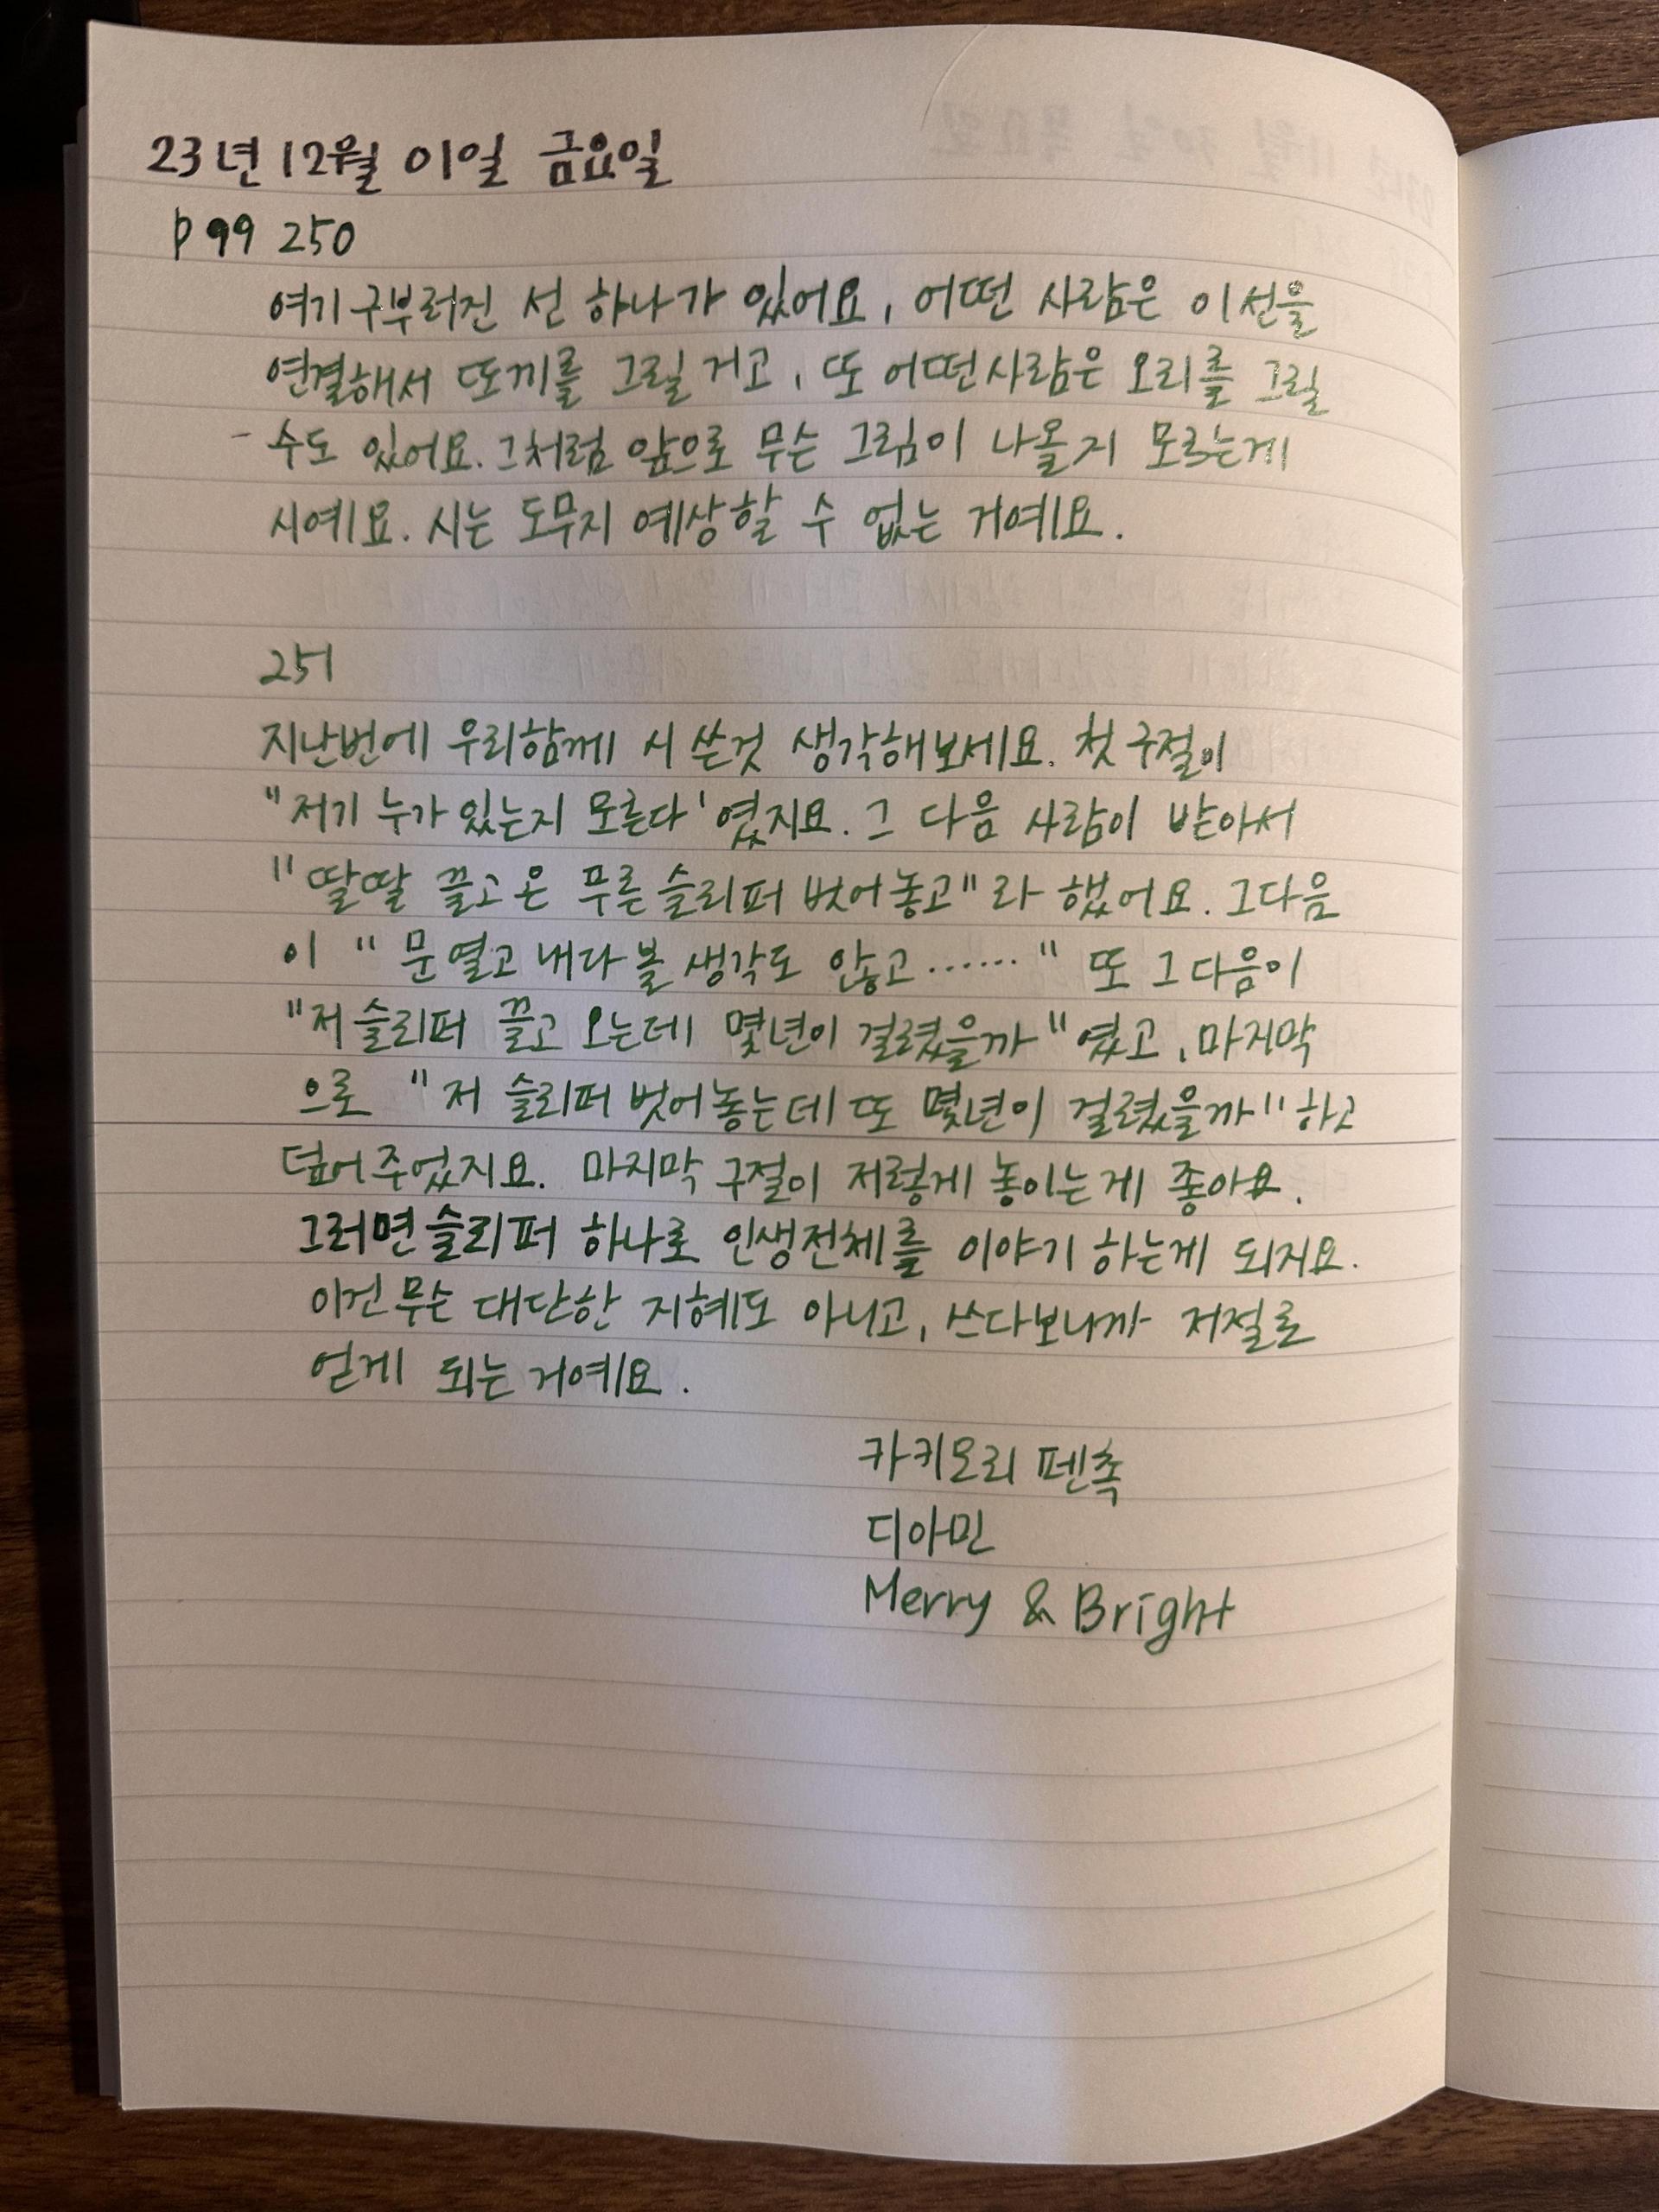 23년 12월 01일 금요일
p 99 250
여기 구부러진 선 하나가 있어요, 어떤 사람은 이 선을
연결해서 또끼를 그릴 거고, 또 어떤사람은 오리를 그릴
- 수도 있어요. 그처럼 앞으로 무슨 그림이 나올지 모르는게
시예요. 시는 도무지 예상할 수 없는 거예요.
251
지난번에 우리함께 시 쓴것 생각해보세요. 첫 구절이
"저기 누가 있는지 모른다'였지요. 그 다음 사람이 받아서
"딸딸 끌고 온 푸른 슬리퍼 벗어놓고"라 했어요. 그다음
이 "문 열고 내다 볼 생각도 않고......" 또 그다음이
"저 슬리퍼 끌고 오는데 몇년이 걸렸을까"였고, 마지막
으로 "저 슬리퍼 벗어놓는데 또 몇년이 걸렸을까" 하고
덮어주었지요. 마지막 구절이 저렇게 놓이는게 좋아요.
그러면 슬리퍼 하나로 인생전체를 이야기 하는게 되지요.
이건 무슨 대단한 지혜도 아니고, 쓰다보니까 저절로
얻게 되는 거예요.
카키모리 펜촉
디아민
Merry & Bright